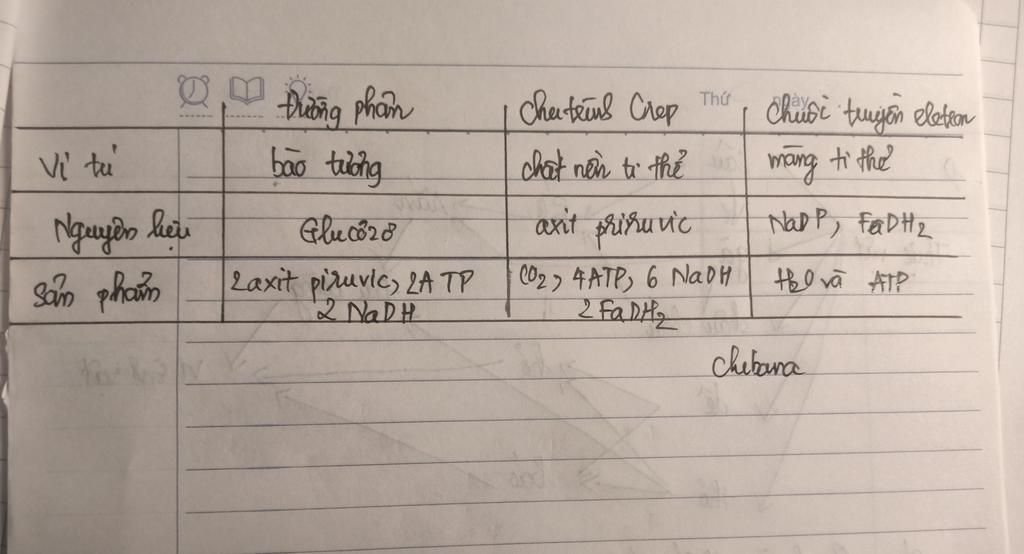 Thứ ngày
Đường phân Chu trình Crep Chuỗi truyền eletron
Vị trí bào tương chất nền ti thể màng ti thể
Nguyên liệu Glucôzơ axit piruvic NaDP, FaDH2
Sản phẩm 2 axit piruvic, 2 ATP CO2, 4ATP, 6 NaDH H2O và ATP
2 NaDH 2 FaDH2